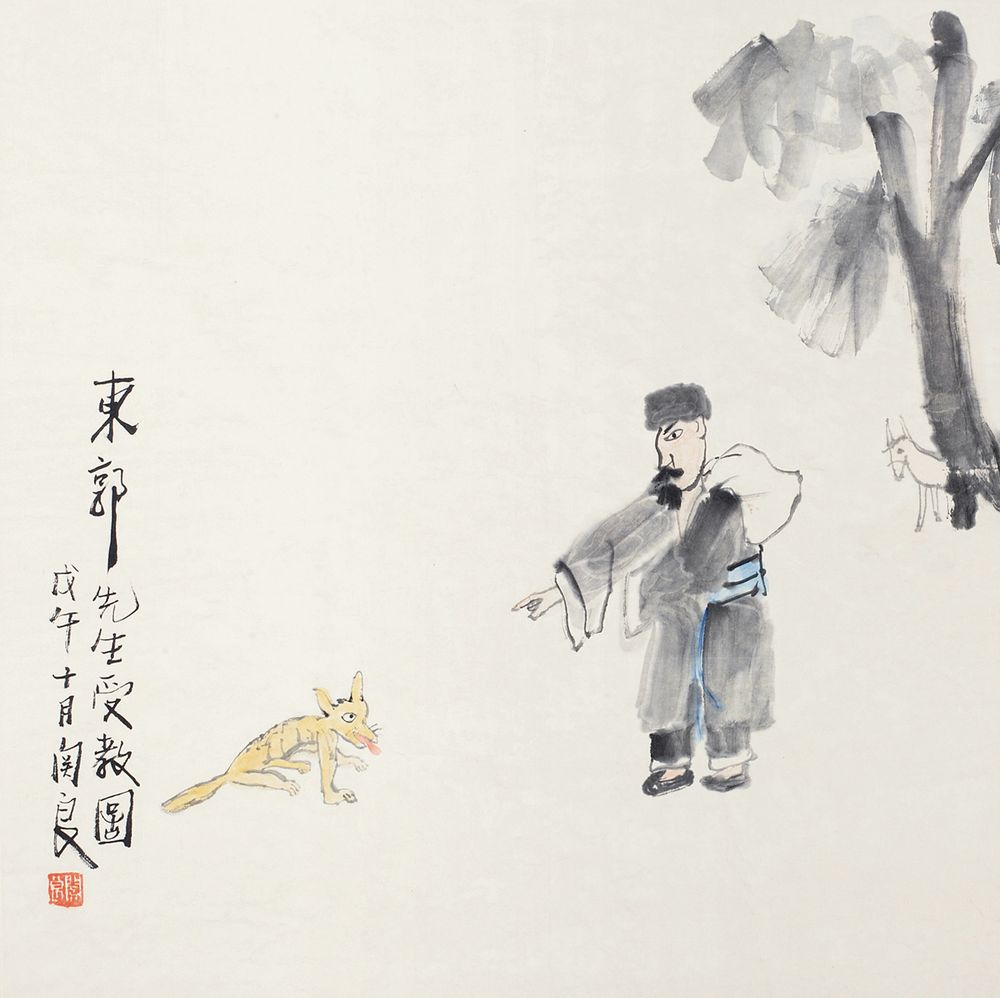 東郭先生受教圖
戊午十月関良